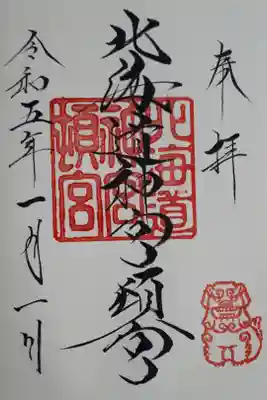 奉拝
北海道神宮頓宮
北海道
神宮
頓宮
令和五年一月一日